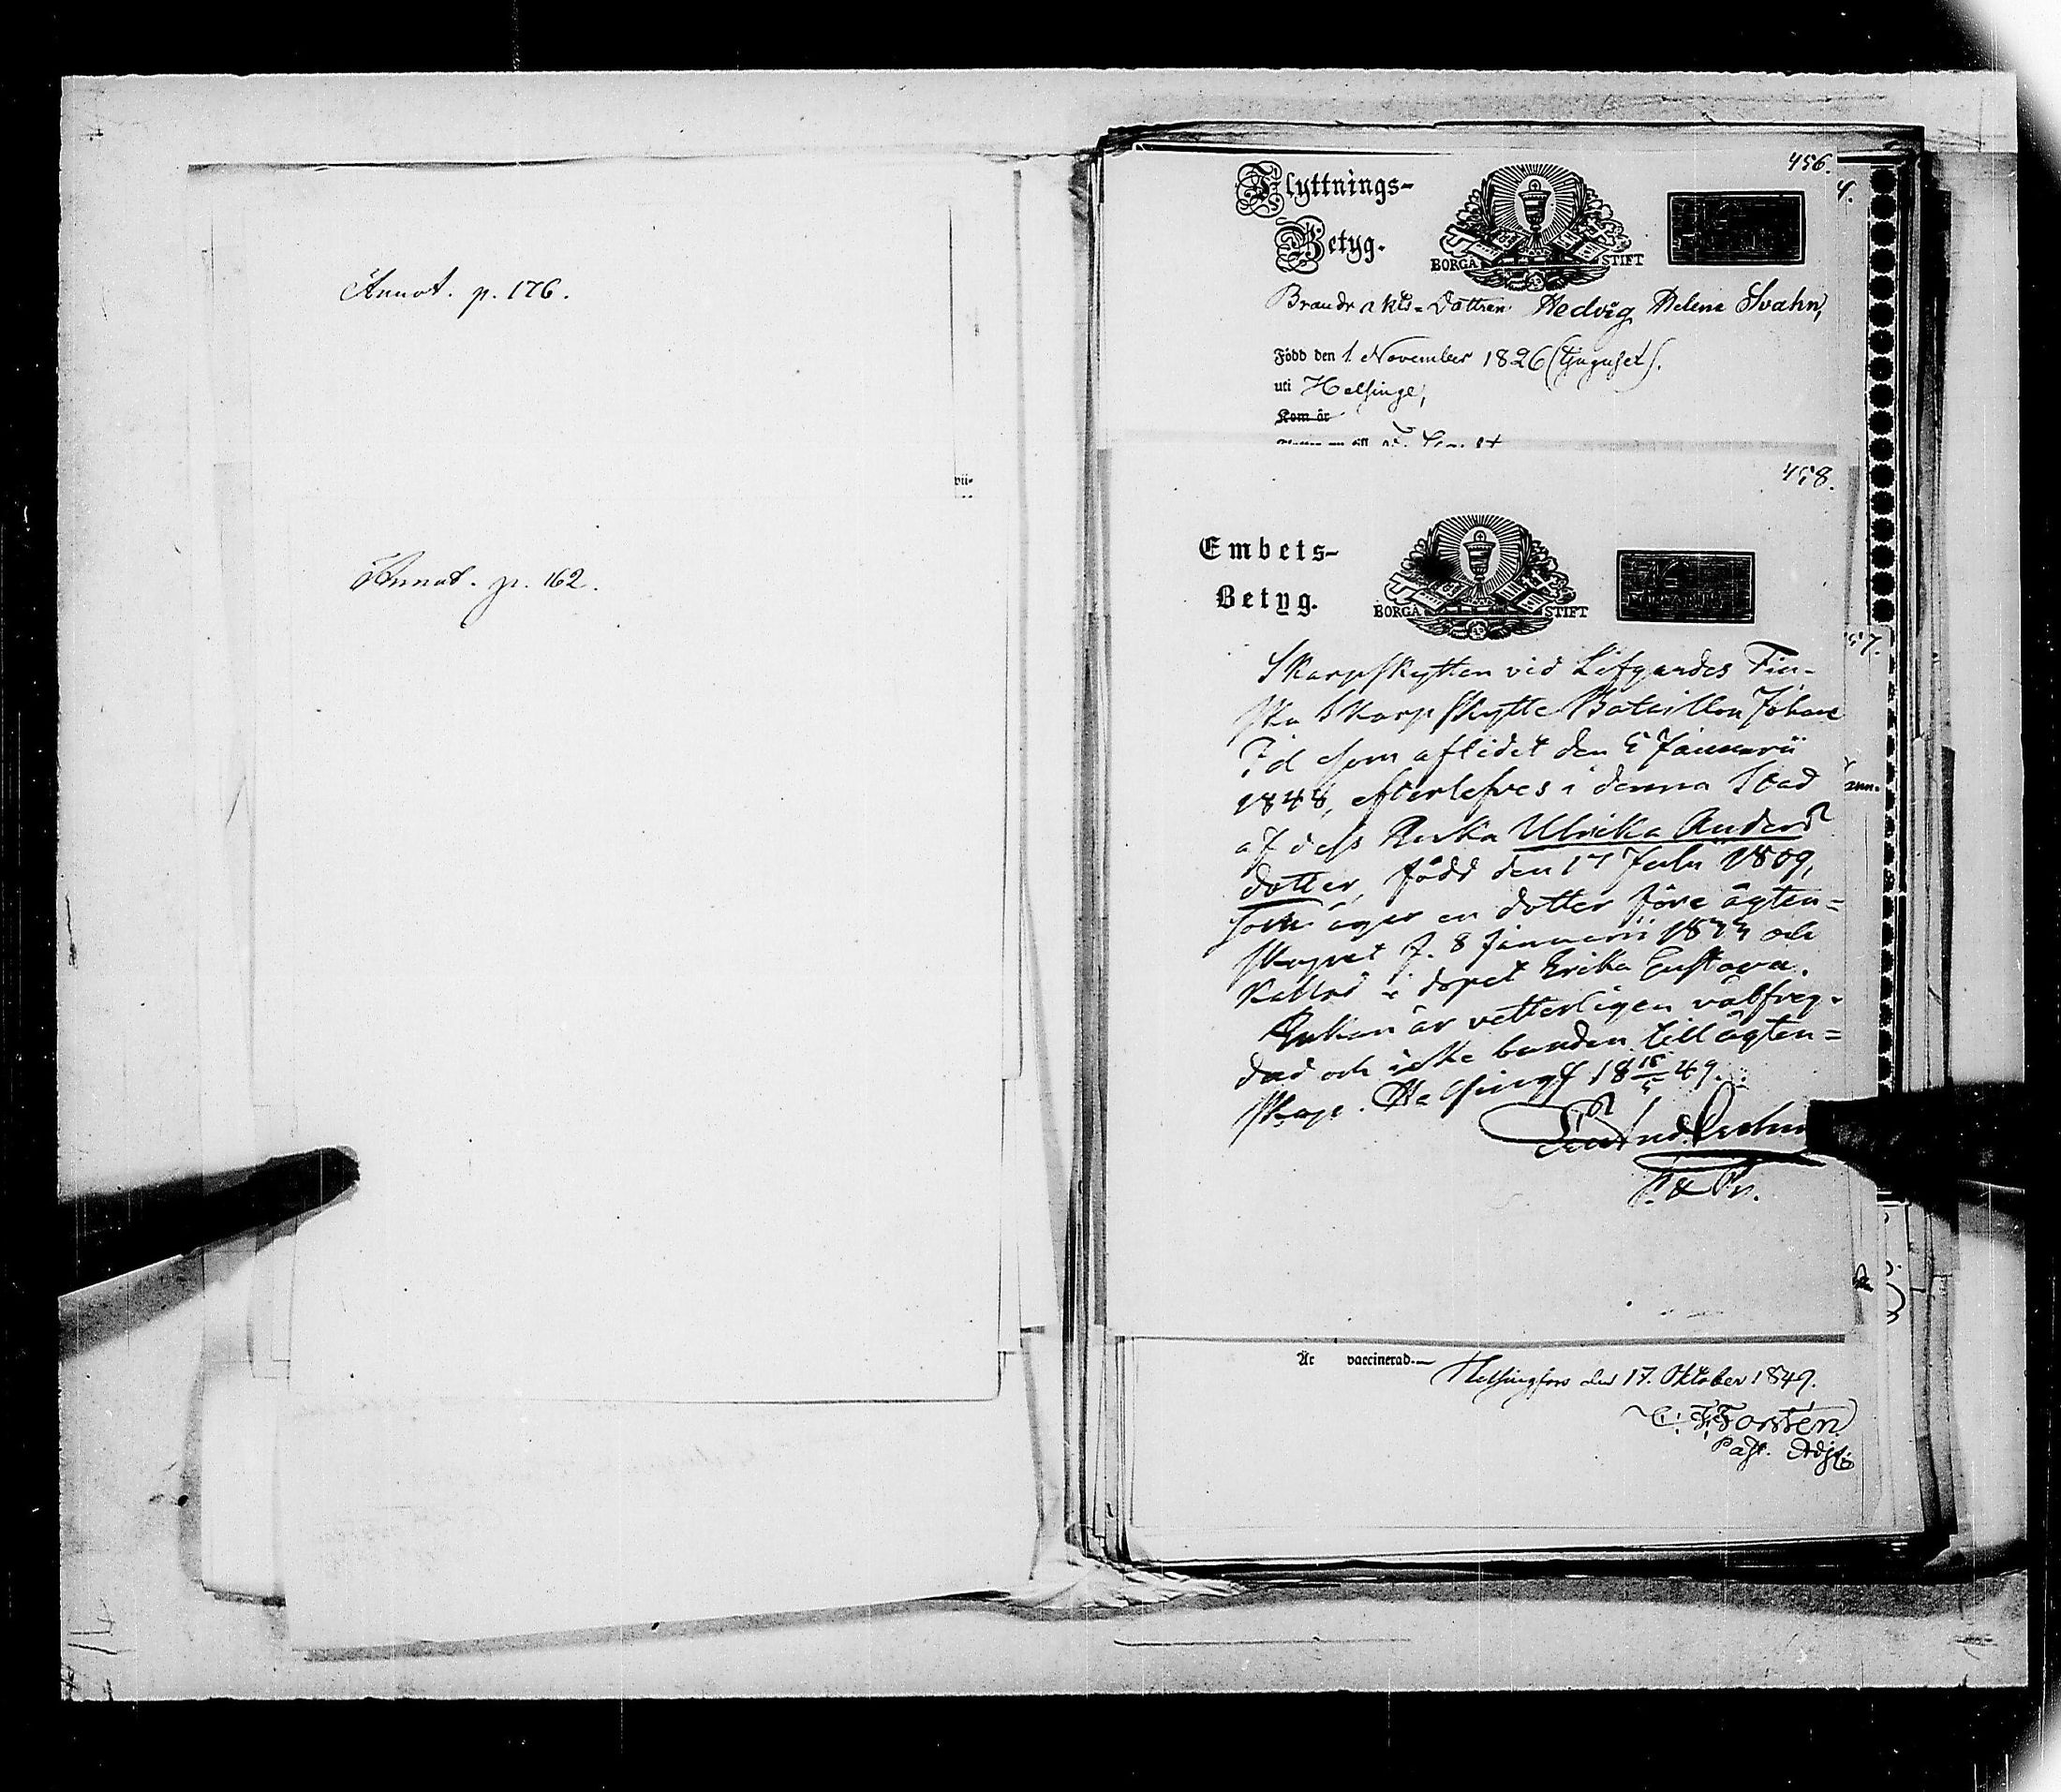 Annot. p. 176.
Annot. p. 162.
456.
4.
Flyttnings-
Betyg.
BORGÅ STIFT
Brandvakts-Dottren Hedvig Helena Svahn,
Född den 1 November 1826 (tjugusex).
uti Helsinge,
Kom år
458.
Embets-
Betyg.
BORGÅ STIFT
Skarpskytten vid Lifgardes Fin-
ska Skarpskytte Bataillon Johan
Id som aflidit den 5 Januarii
1848, efterlefves i denna Stad
af dess Enka Ulrika Anders
dotter, född den 17 Julii 1809,
som äger en dotter före ägten-
skapet f. 8 Januarii och
kallad i dopet Erika Gustava.
Enkan är vetterligen välfrej-
dad och icke bunden till ägten-
skap. Helsingf 18 15/5 49.
Är vaccinerad.
Helsingfors den 17. Oktober 1849.
C. F. Forstén
Past. Adj.